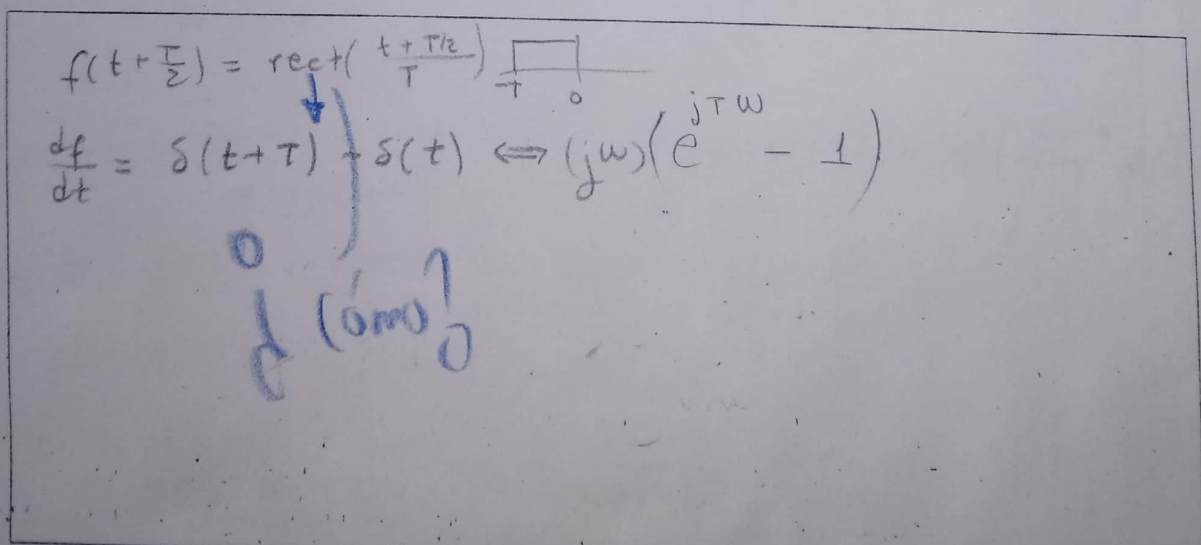 f(t + T/2) = rect( (t + T/2)/T )
-T 0
df/dt = δ(t+T) - δ(t) ⟺ (jω)(e^{jTω} - 1)
¿Cómo?